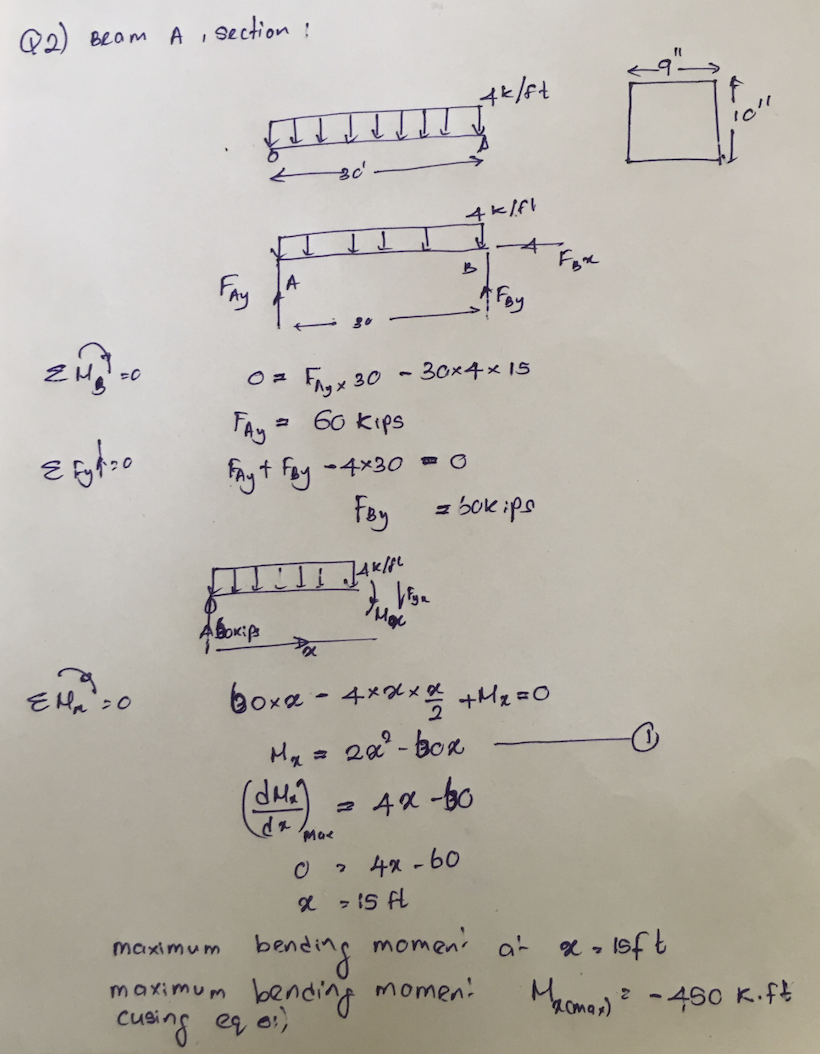 Q2) Beam A, section:
9"
4k/ft
10"
30'
4k/ft
F_Bx
B
A
F_Ay
F_By
30
ΣM_B=0 0 = F_Ay × 30 - 30×4×15
F_Ay = 60 Kips
ΣFy=0 F_Ay + F_By - 4×30 = 0
F_By = 60kips
4k/ft
Mx
60kips
x
ΣMx=0 60×x - 4×x×x/2 + Mx=0
Mx = 2x² - 60x ①
(dMx/dx)max = 4x - 60
0 = 4x - 60
x = 15 ft
maximum bending moment at x = 15ft
maximum bending moment Mx(max) = -450 K.ft
(using eq 01)